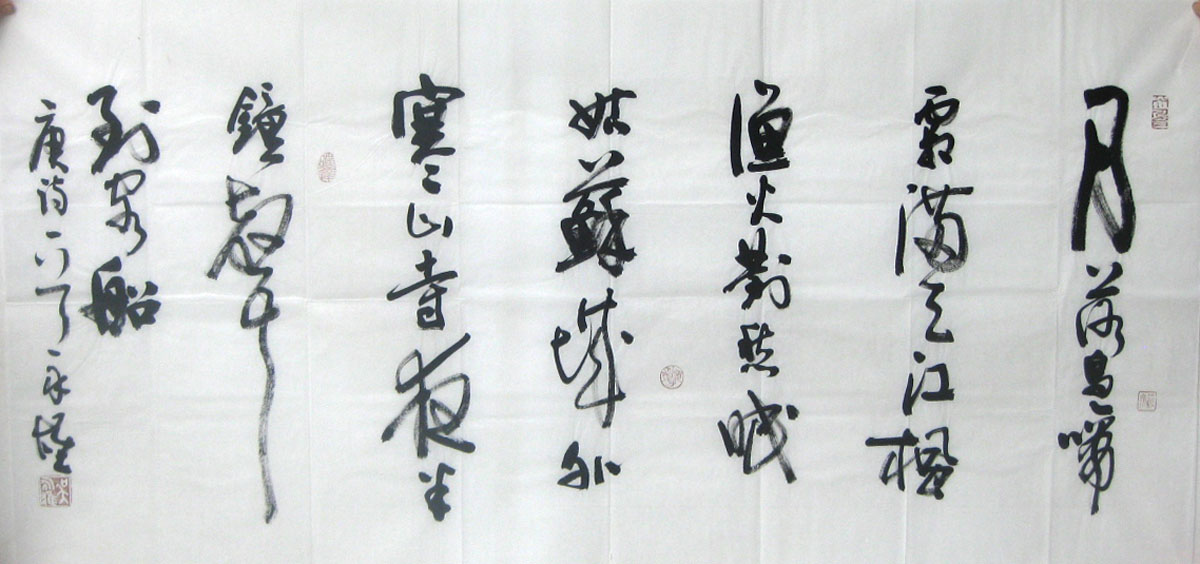 月落烏啼
霜滿天江楓
漁火對愁眠
姑蘇城外
寒山寺夜半
鐘聲
到客船
唐詩一首永